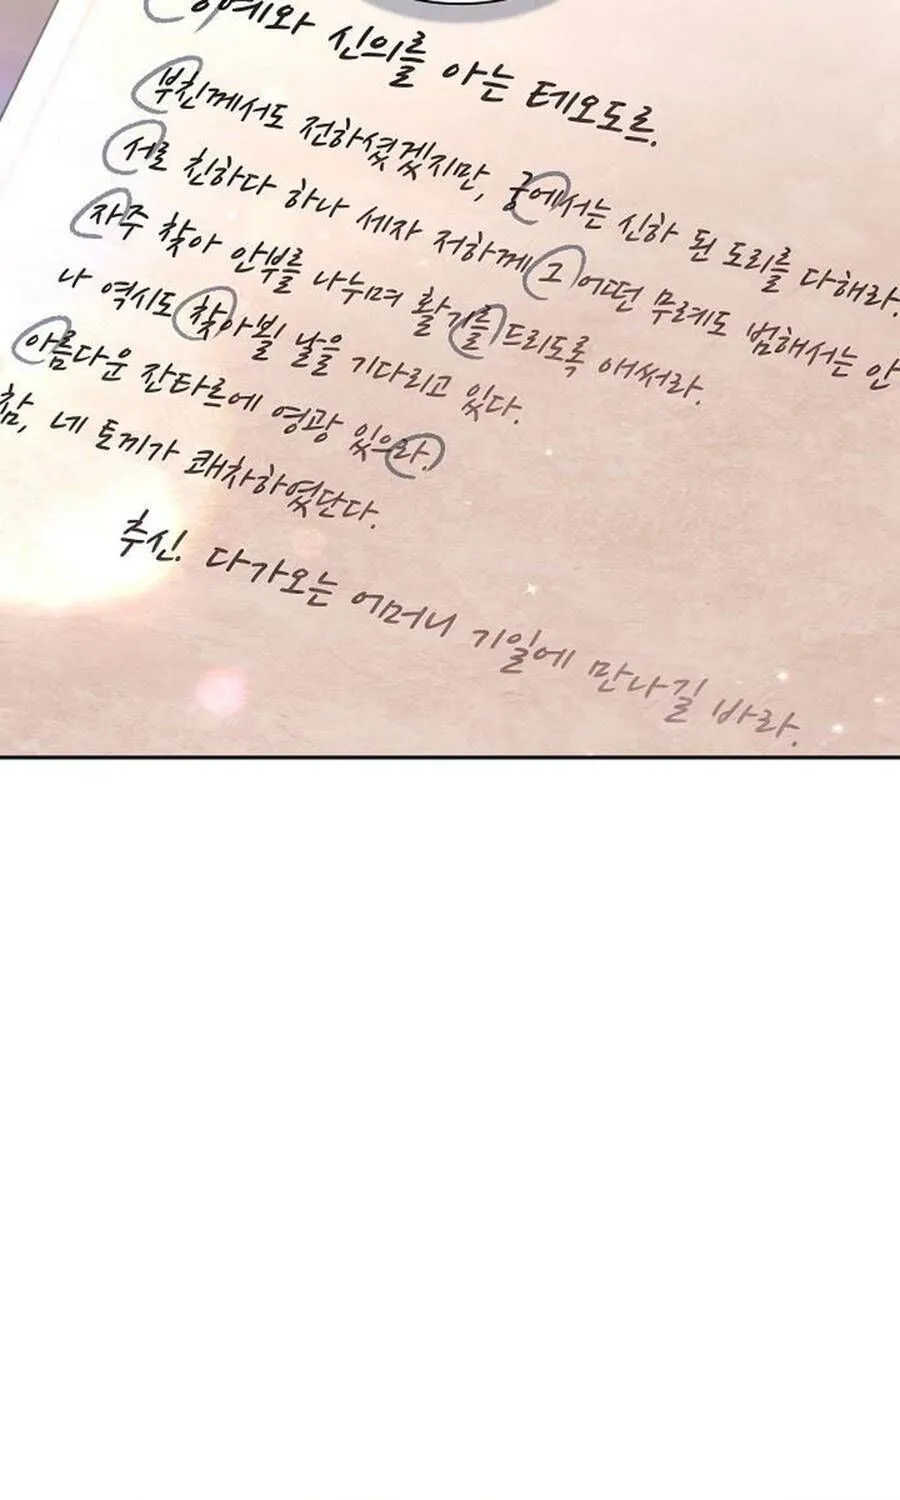 예와 신의를 아는 테오도르.
부친께서도 전하셨겠지만, 궁에서는 신하 된 도리를 다해라.
서로 친하다 하나 세자 저하께 그 어떤 무례도 범해서는 안
자주 찾아 안부를 나누며 활기를 드리도록 애써라.
나 역시도 찾아뵐 날을 기다리고 있다.
아름다운 잔타르에 영광 있으라.
참, 네 토끼가 쾌차하였단다.
추신. 다가오는 어머니 기일에 만나길 바라.